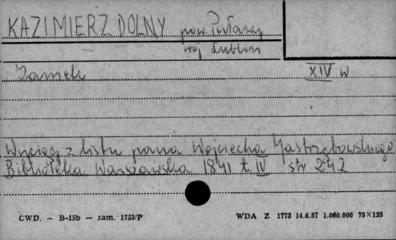 KAZIMIERZ DOLNY pow. Puławy
woj Lublin
Zamek XIV w
Wyciąg z listu pana Wojciecha Jastrzębowskiego
Biblioteka Warszawska 1841 t. IV str 242
CWD. - B-15b - zam. 1753/P WDA Z 1773 14.6.57 1.060.000 75×125